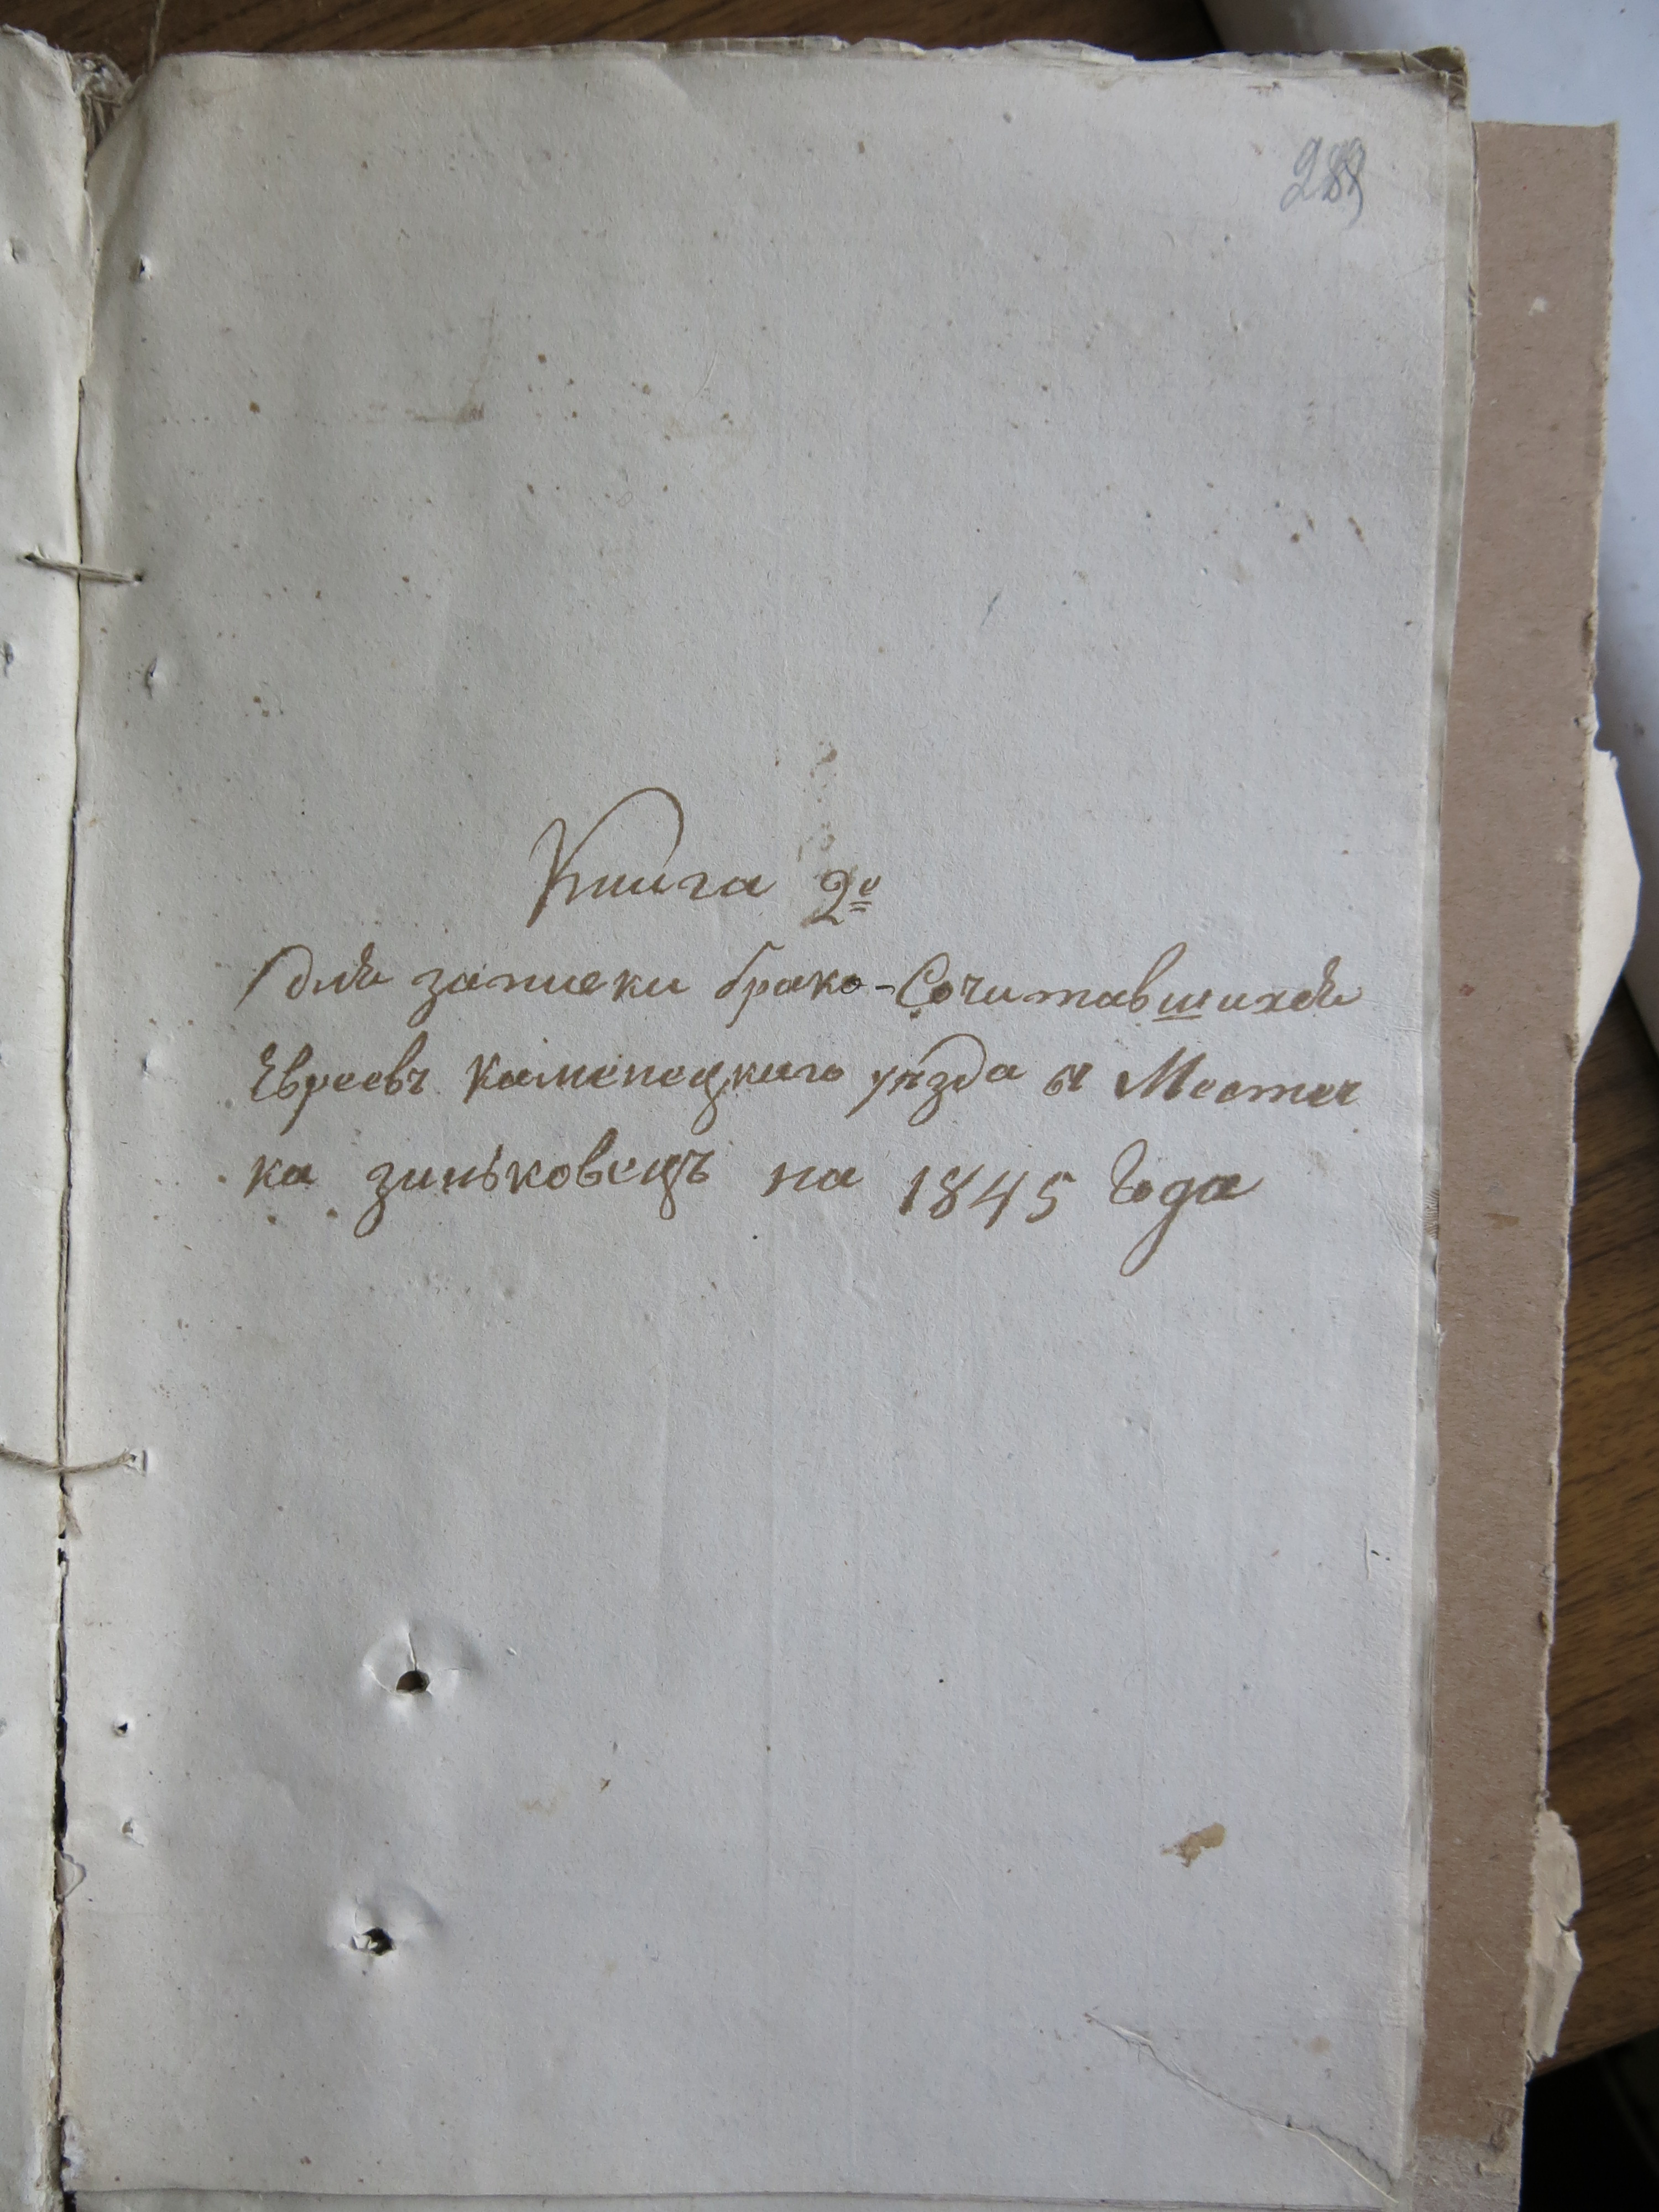 289
Книга 2я
для записки брако-Сочитавшихся
Евреевъ каменецкаго уѣзда и Местеч
ка зиньковецъ на 1845 Года